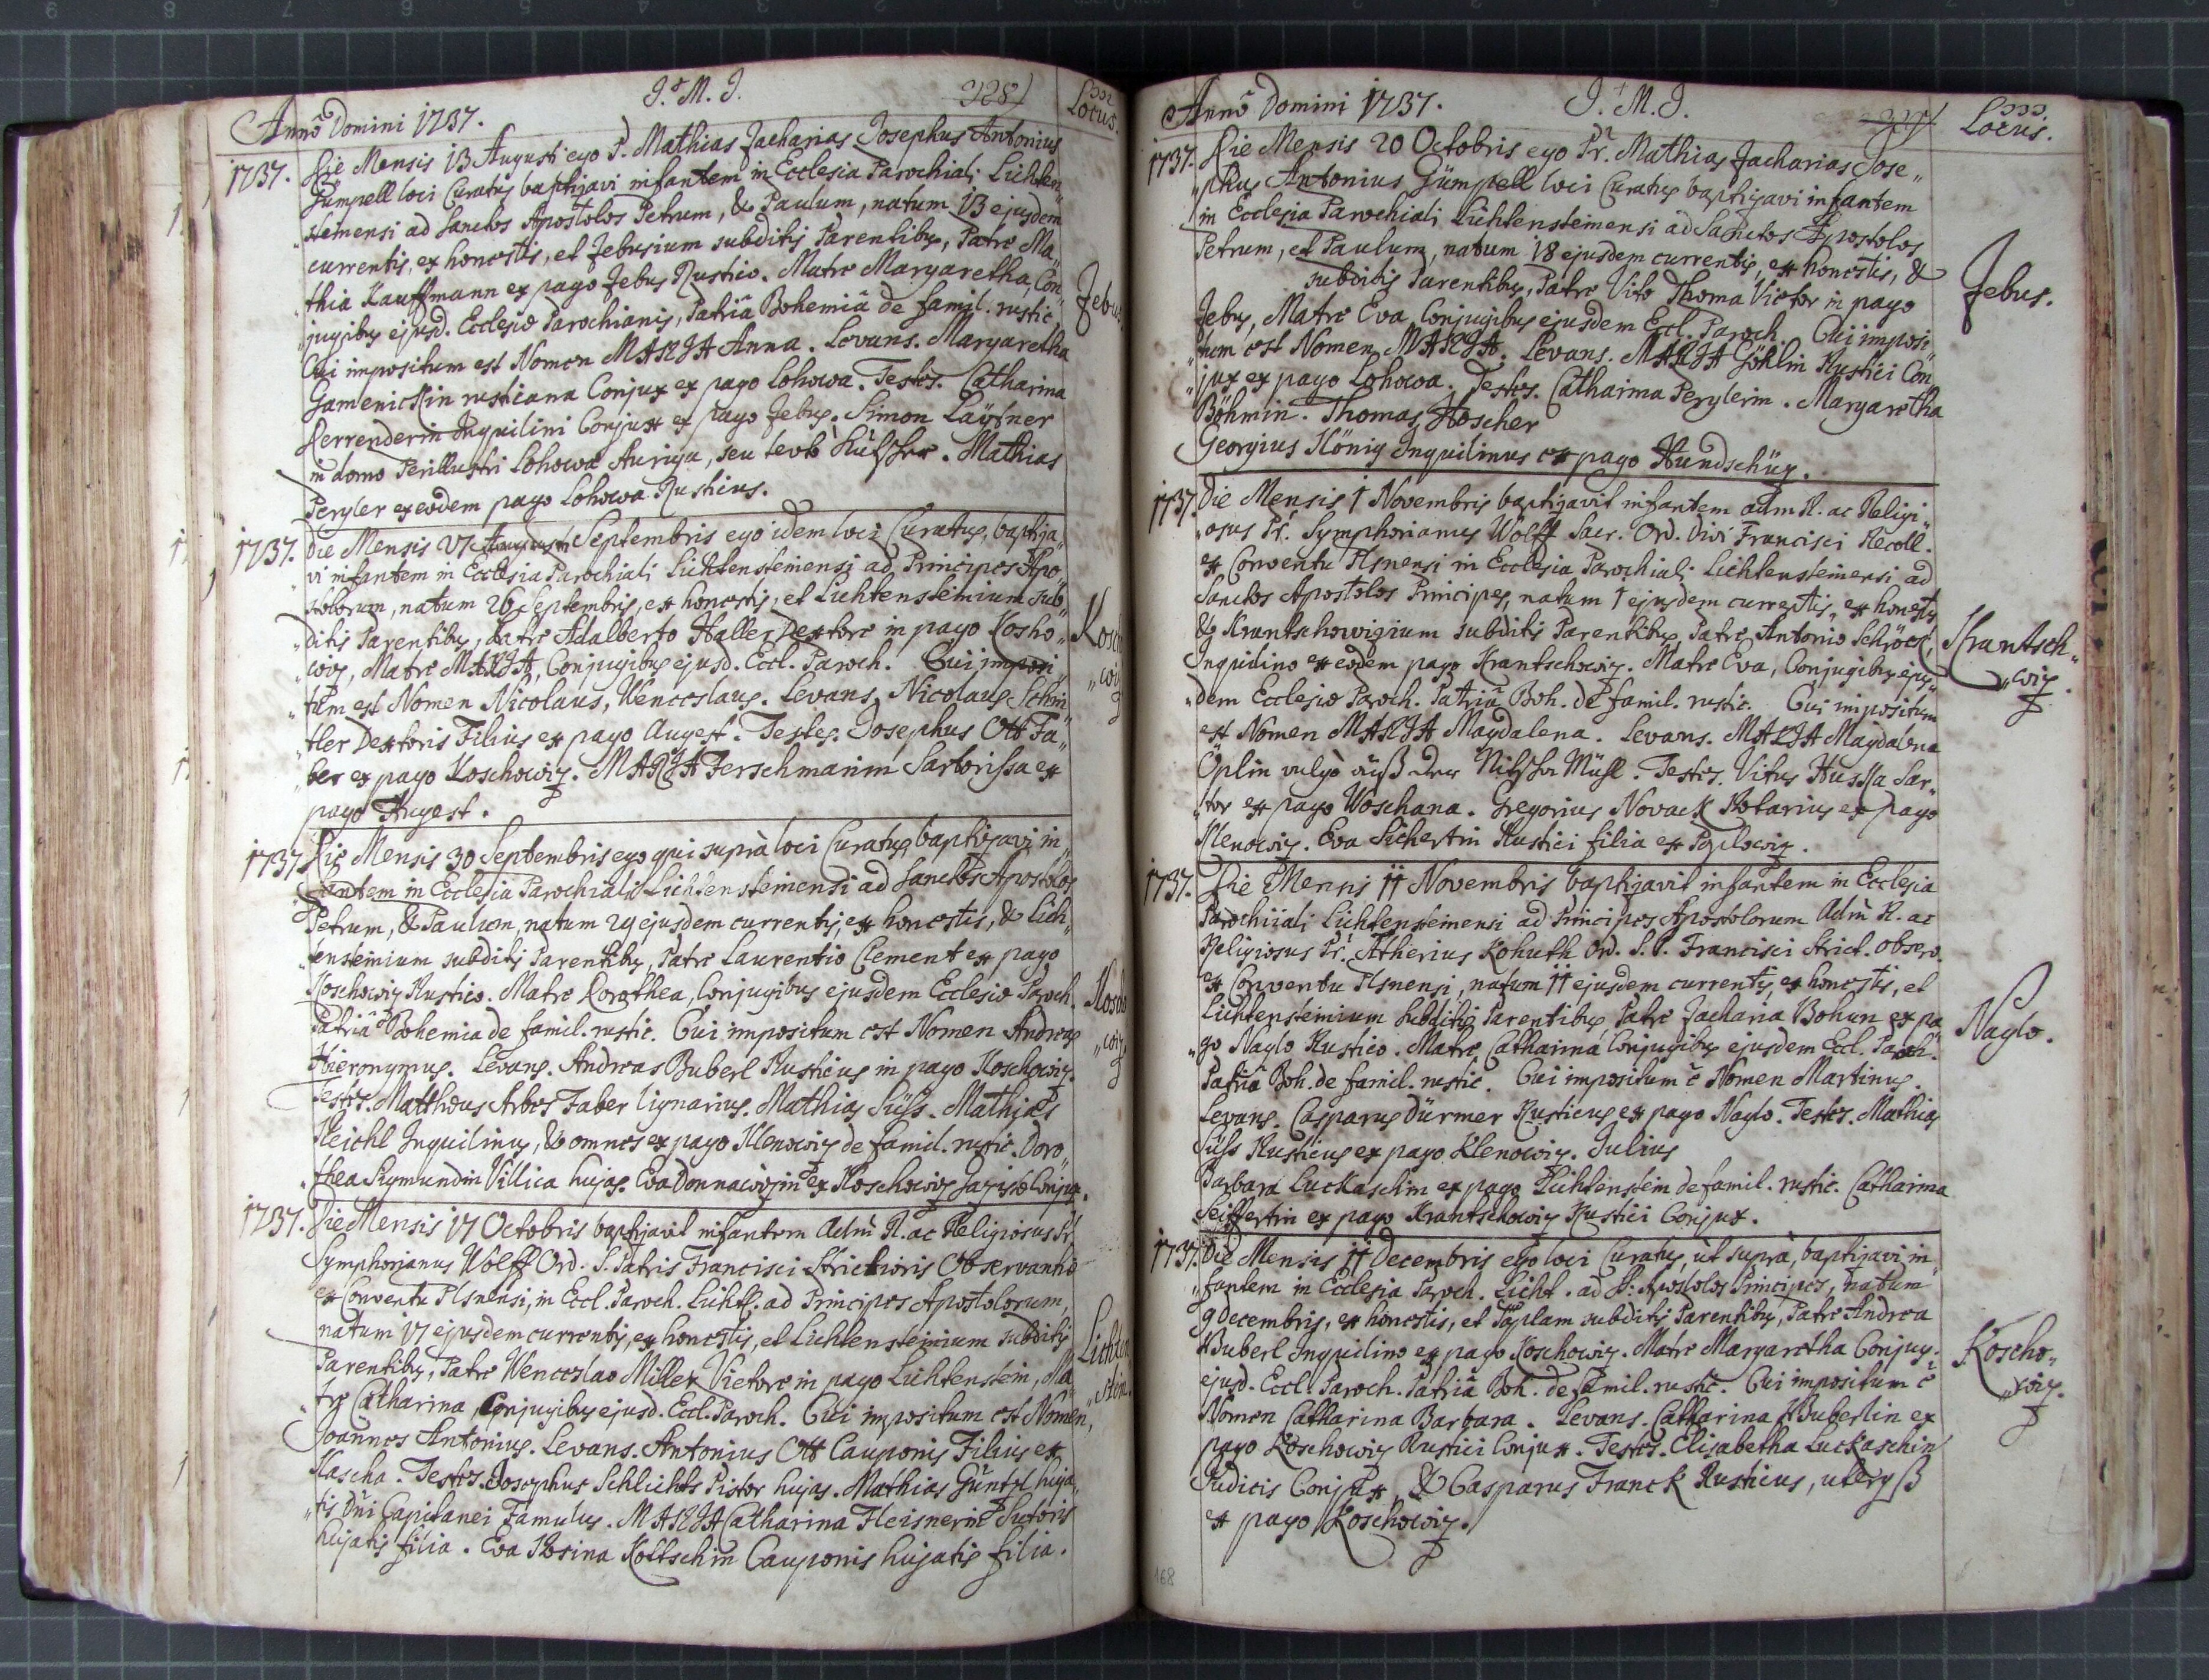 Anno Domini 1737. J. M. J. 332
Locus.
1737. Die Mensis 13 Augusti ego P. Mathias Zacharias Josephus Antonius
Gümpell loci Curatus baptizavi infantem in Ecclesia Parochiali Lichten„
„steinensi ad Sanctos Apostolos Petrum, & Paulum, natum 13 ejusdem
currentis, ex honestis, et Jebusium subditis Parentibus, Patre Ma„
„thia Kauffmann ex pago Jebus Rustico. Matre Margaretha, Con„
„jugibus ejusd. Ecclesiæ Parochianis, Patriâ Bohemiâ de famil. rustic.
Cui impositum est Nomen MARIA Anna. Levans. Margaretha
Gamenickin rusticana Conjux ex pago Lohowa. Testes. Catharina
Herrenderin Inquilini Conjux ex pago Jebus. Simon Laÿtner
in domo Perillustri Lohowæ Auriga, seu Kütscher. Mathias
Pergler ex eodem pago Lohowa Rusticus.
Jebus.
1737. Die Mensis 27 Septembris ego idem loci Curatus, baptiza„
vi infantem in Ecclesia Parochiali Lichtensteinensi ad Principes Apo„
stolorum, natum 26 Septembris, ex honestis, et Lichtensteinium sub„
„ditis Parentibus, Patre Adalberto Haller Textore in pago Kosho„
„wiz, Matre MARIA, Conjugibus ejusd. Eccl. Paroch. Cui imposi„
„tum est Nomen Nicolaus, Wenceslaus. Levans. Nicolaus Schmi„
„tler Textoris Filius ex pago Augest. Testes. Josephus Ott Fa„
„ber ex pago Koschowiz. MARIA Ferschmanin Sartorissa ex
pago Augest.
Kosch
„wiz
1737. Die Mensis 30 Septembris ego qui suprà loci Curatus baptizavi in„
„fantem in Ecclesia Parochiali Lichtensteinensi ad Sanctos Apostolos
Petrum, & Paulum, natum 29 ejusdem currentis, ex honestis, & Lich„
„tensteinium subditis Parentibus, Patre Laurentio Clement ex pago
Koschowiz Rustico. Matre Dorothea, Conjugibus ejusdem Ecclesiæ Paroch.
Patriâ Bohemia de famil. rustic. Cui impositum est Nomen Andreas
Hieronymus. Levans. Andreas Buberl Rusticus in pago Koschowiz.
Testes. Matthæus Arbes Faber lignarius. Mathias Süss. Mathias
Reichl Inquilinus, & omnes ex pago Klenowiz de famil. rustic. Doro„
„thea Sigmundin Villica hujas. Eva Donnawizin ex Koschowiz
Koscho
„wiz
1737. Die Mensis 17 Octobris baptizavit infantem Adm̃ R. ac Religiosus Pr.
Symphorianus Wolff Ord. S. Patris Francisci Strictioris Observantiæ
ex Conventu Plsnensi, in Eccl. Paroch. Lichtt. ad Principes Apostolorum,
natum 17 ejusdem currentis, ex honestis, et Lichtensteinium subditis
Parentibus, Patre Wenceslao Miller Vietore in pago Lichtenstein, Ma„
„tre Catharina, Conjugibus ejusd. Eccl. Paroch. Cui impositum est Nomen,
Joannes Antonius. Levans. Antonius Ott Cauponis Filius ex
Kascha. Testes. Josephus Schlichts Pistor hujas. Mathias Güntzl huja„
„tis Dñi Capitanei Famulus. MARIA Catharina Fleisnerin Sutoris
hujatis filia. Eva Rosina Koltschin Cauponis hujatis filia.
Lichten
„stein.
Anno Domini 1737. J. M. J. 333
Locus.
1737. Die Mensis 20 Octobris ego Pr. Mathias Zacharias Jose„
„phus Antonius Gümpell loci Curatus baptizavi infantem
in Ecclesia Parochiali Lichtensteinensi ad Sanctos Apostolos
Petrum, et Paulum, natum 18 ejusdem currentis, ex honestis, &
subditis Parentibus, Patre Vito Thoma Vietor in pago
Jebus, Matre Eva, Conjugibus ejusdem Eccl. Paroch. Cui imposi„
„tum est Nomen MARIA. Levans. MARIA Göhlin Rustici Con„
„jux ex pago Lohowa. Testes. Catharina Perglerin. Margaretha
Böhmin. Thomas Hoscher
Georgius König Inquilinus ex pago Hundschüz.
Jebus.
1737. Die Mensis 1 Novembris baptizavit infantem adm R. ac Religi„
„osus Pr. Symphorianus Wolff Sacr. Ord. Divi Francisci Recoll.
ex Conventu Plsnensi in Ecclesia Parochiali Lichtensteinensi ad
Sanctos Apostolos Principes, natum 1 ejusdem currentis, ex honestis,
& Krantschowizium subditis Parentibus, Patre Antonio Schröck,
Inquilino ex eodem pago Krantschowiz. Matre Eva, Conjugibus ejus„
„dem Ecclesiæ Paroch. Patriâ Boh. de famil. rustic. Cui impositum
est Nomen MARIA Magdalena. Levans. MARIA Magdalena
Öplin vulgò auß der Mühl. Testes. Vitus Hussa Sar„
„tor ex pago Woschana. Gregorius Novack Rotarius ex pago
Klenowiz. Eva Sichertin Rustici filia ex
Krantsch„
„wiz.
1737. Die Mensis 11 Novembris baptizavit infantem in Ecclesia
Parochiali Lichtensteinensi ad Principes Apostolorum Adm̃ R. ac
Religiosus Pr. Atherius Kohuth Ord. S. P. Francisci Strict. Observ.
ex Conventu Plsnensi, natum 11 ejusdem currentis, ex honestis, et
Lichtensteinium subditis Parentibus, Patre Zacharia Bohun ex pa„
„go Naglo Rustico. Matre Catharina Conjugibus ejusdem Eccl. Paroch.
Patriâ Boh. de famil. rustic. Cui impositum ẽ Nomen Martinus.
Levans. Casparus Dürmer Rusticus ex pago Naglo. Testes. Mathias
Süss Rusticus ex pago Klenowiz. Julius
Barbara Luckaschin ex pago Lichtenstein de famil. rustic. Catharina
Seiffertin ex pago Krantschowiz Rustici Conjux.
Naglo.
1737. Die Mensis 11 Decembris ego loci Curatus, ut suprà, baptizavi in„
„fantem in Ecclesia Paroch. Licht. ad S: Apostolos Principes, natum
9 decembris, ex honestis, et subditis Parentibus, Patre Andrea
Buberl Inquilino ex pago Koschowiz. Matre Margaretha Conjug.
ejusd. Eccl. Paroch. Patriâ Boh. de famil. rustic. Cui impositum ẽ
Nomen Catharina Barbara. Levans. Catharina Buberlin ex
pago Koschowiz Rustici Conjux. Testes. Elisabetha Luckaschin
Judicis Conjux, & Casparus Franck Rusticus,
ex pago Koschowiz.
Koscho„
„wiz.
168